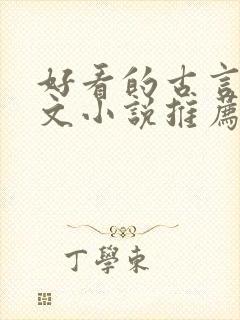 好看的古言
文小説推薦
丁學東